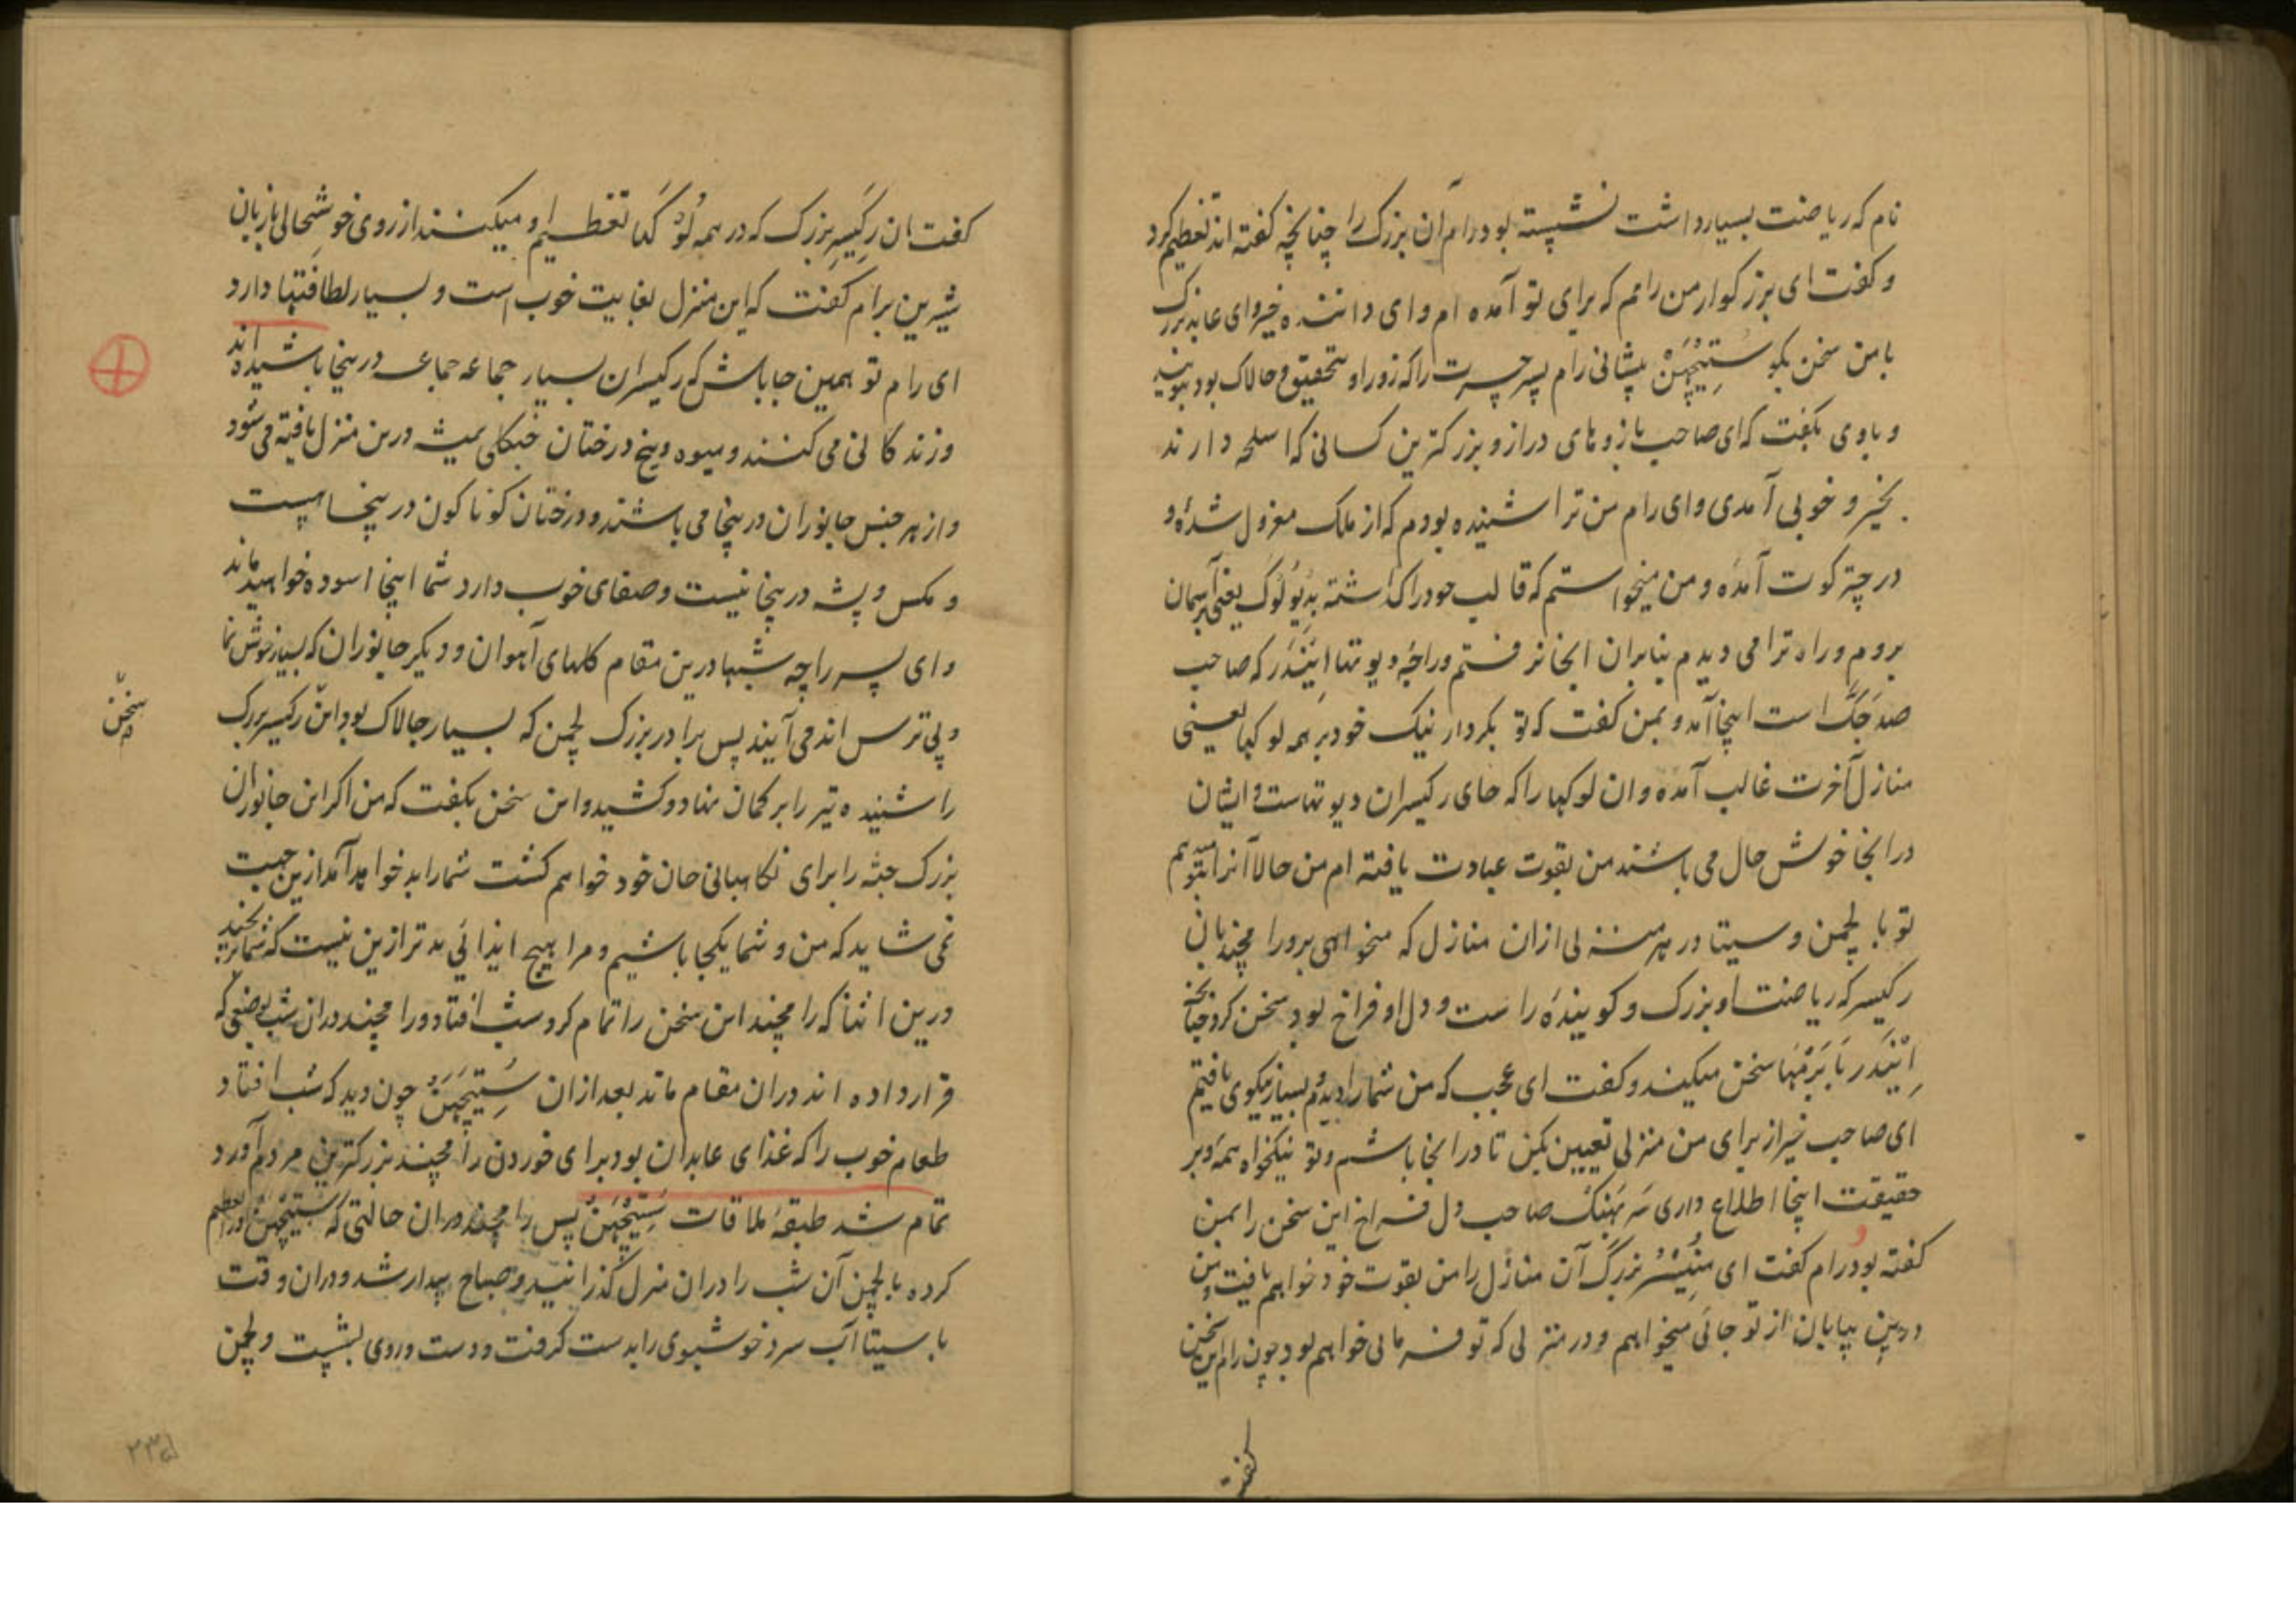 نام که ریاضت بسیار داشت نشسته بود رام آن بزرگ را چنانچه گفته اند تعظیم کرد
و گفت ای بزرگوار من رامم که برای تو آمده ام و ای داننده خیر و ای عابد بزرگ
با من سخن بگو سُتِیچَهَن پیشانی رام پسر جسرت را که زور او تحقیق و چالاک بود
و با وی بگفت که ای صاحب بازوهای دراز و بزرگترین کسانی که اسلحه دارند
بخیر و خوبی آمدی و ای رام من ترا شنیده بودم که از ملک معزول شدهٔ و
در چترکوت آمدهٔ و من میخواستم که قالب خود را گذاشته به دیولوک یعنی آسمان
بروم و راه ترا می دیدم بنابران آنجا نرفتم و راجهٔ دیوتها اِنْدَر که صاحب
صد جَگ است اینجا آمد و بمن گفت که تو بکردار نیک خود بر همه لوکها یعنی
منازل آخرت غالب آمدهٔ و ان لوکها را که جای رکیسران دیوتهاست و ایشان
در آنجا خوش حال می باشند من بقوت عبادت یافته ام من حالا آنرا بتو
تو با لچمن و سیتا در هر منزلی ازان منازل که میخواهی برو رامچند بان
رکیسر که ریاضت او بزرگ و گویندهٔ راست و دل او فراخ بود سخن کرد
اِنْدَر با بَرَمْهَا سخن میکند و گفت ای عجب که من شما را دیدم بسیار نیکوی یافتم
ای صاحب خیر از برای من منزلی تعیین بکن تا در آنجا باشم و تو نیکخواه همهٔ و بر
حقیقت اینجا اطلاع داری سَرَبهَنگ صاحب دل فراخ این سخن را بمن
گفته بود رام گفت ای مُنیسُر بزرگ آن منازل را من بقوت خود خواهم یافت و من
درین بیابان از تو جائی میخواهم و در منزلی که تو فرمائی خواهم بود چون رام این سخن
گفت
گفت ان رکیسر بزرگ که در همه لوک‌ها تعظیم او میکنند از روی خوشحالی بازبان
شیرین برام گفت که این منزل بغایت خوب است و بسیار لطافتها دارد
ای رام تو همین جا باش که رکیسران بسیار جماعه جماعه درینجا باشیده اند
و زندگانی می کنند و میوه و بیخ درختان جنگلی همیشه درین منزل یافته می شود
و از هر جنس جانوران درینجا می باشند و درختان گوناگون درینجا هست
و مگس و پشه درینجا نیست و صفای خوب دارد شما اینجا آسوده خواهید ماند
و ای پسر راجه شبها درین مقام گلهای آهوان و دیگر جانوران که بسیار خوش نما
و بی ترس اند می آیند پس برادر بزرگ لچمن که بسیار چالاک بود این رکیسر بزرگ
سخن
را شنیده تیر را بر کمان نهاد و کشید و این سخن بگفت که من اگر این جانوران
بزرگ جثه را برای نگاهبانی جان خود خواهم کشت شما را بد خواهد آمد ازین جهت
نمی شاید که من و شما یکجا باشیم و مرا هیچ ایذائی بدتر ازین نیست که شما برنجید
درین اثنا که رامچند این سخن را تمام کرد و شب افتاد و رامچند دران شب بوضعی که
قرار داده اند دران مقام ماند بعد ازان سُتِیچَهَن چون دید که شب افتاد
طعام خوب را که غذای عابدان بود برای خوردن رامچند بزرگترین مردم آورد
تمام شد طبقهٔ ملاقات سُتِیچَهَن پس رامچند دران حالتی که سُتِیچَهَن او را تعظیم
کرده با لچمن آن شب را دران منزل گذرانید و صباح بیدار شد و دران وقت
با سیتا آب سرد خوشبوی را بدست گرفت و دست و روی بشست و لچمن